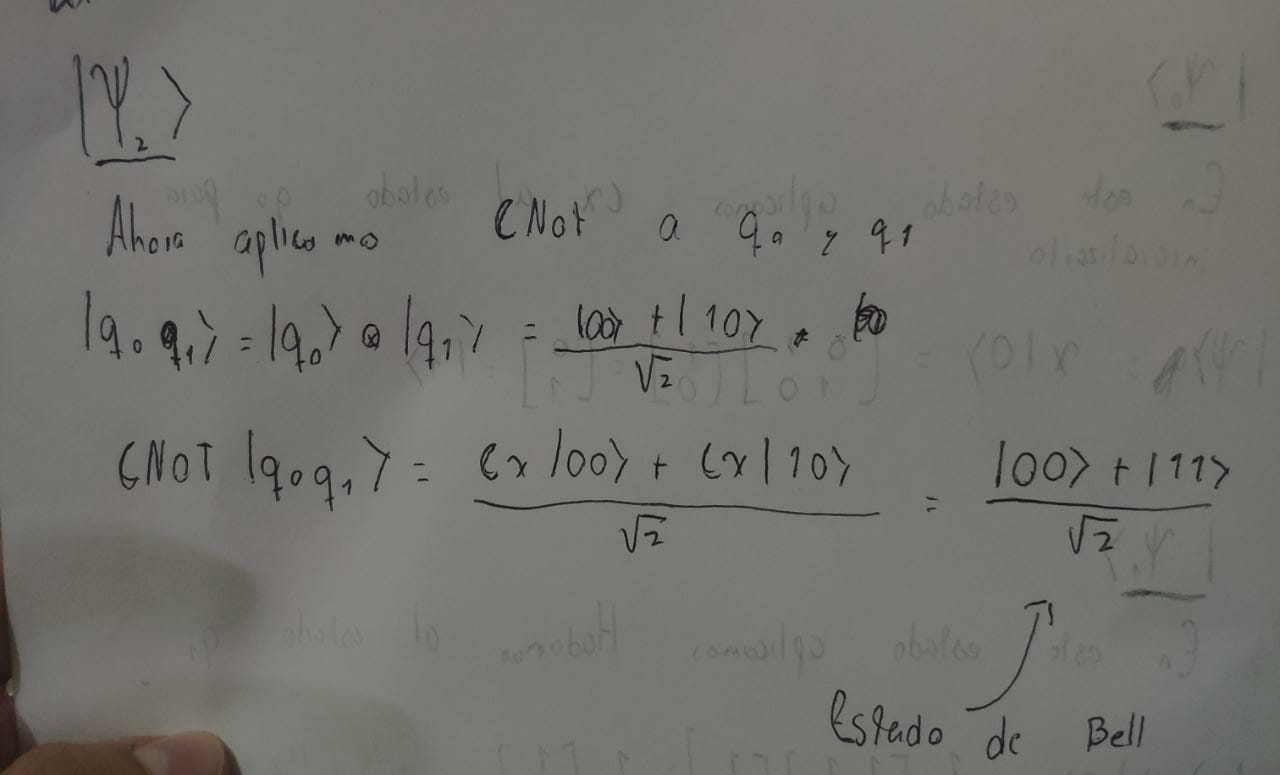 |Ψ₂⟩
Ahora aplicamo CNot a q₀ y q₁
|q₀ q₁⟩ = |q₀⟩ ⊗ |q₁⟩ = (|00⟩ + |10⟩)/√2 *
CNOT |q₀q₁⟩ = (Cx |00⟩ + Cx |10⟩)/√2 = (|00⟩ + |11⟩)/√2
Estado de Bell